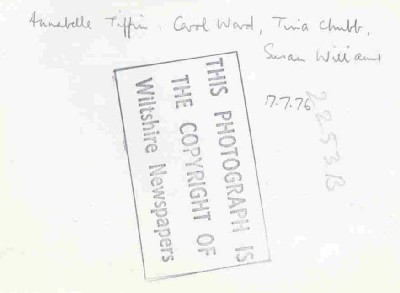 Annabelle Tiffin. Carol Ward, Tina Chubb,
Susan Williams
17.7.76
22533
THIS PHOTOGRAPH IS
THE COPYRIGHT OF
Wiltshire Newspapers